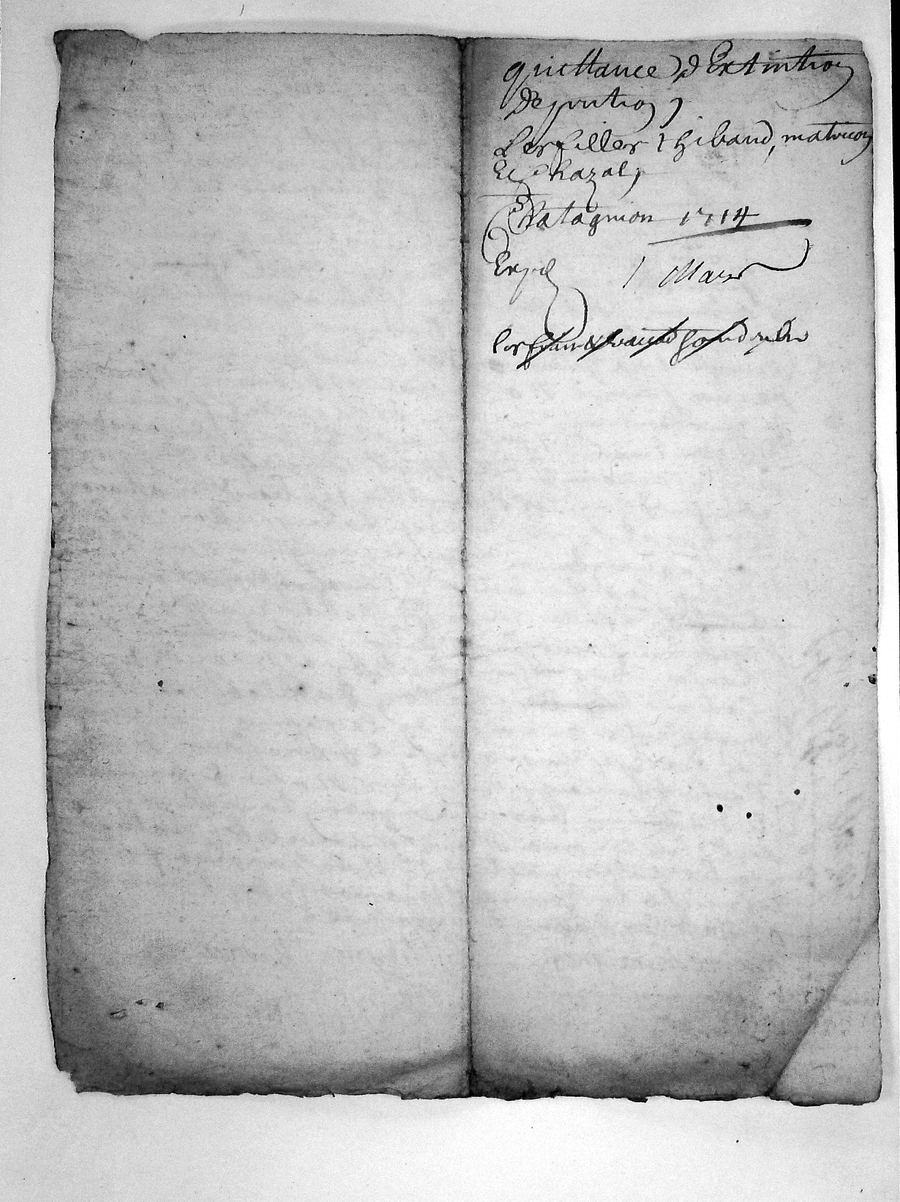 quittance d'Extintion
De pention,
Les filles Thibaud, matrion
Et Chazal,
Chatagnion 1714
Exp.é 1 Mars